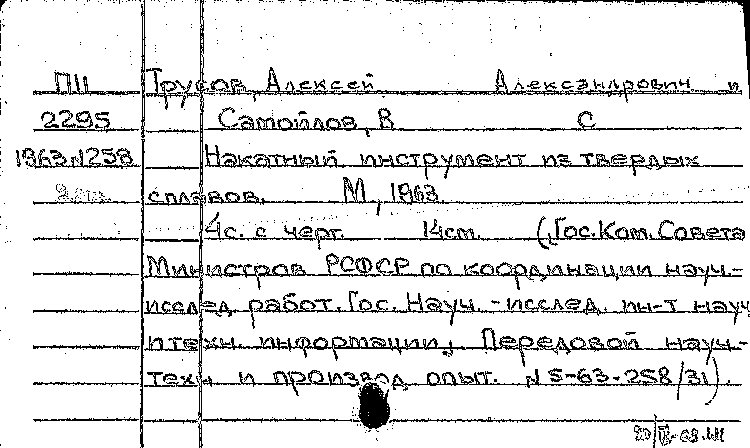 ПІІ Трусов, Алексей Александрович и
2295 Самойлов, В С
1963№1258 Накатный инструмент из твердых
сплавов. М, 1963
4с. с черт. 14см. (Гос. Ком. Совета
Министров РСФСР по координации науч.-
исслед. работ. Гос. Науч.-исслед. ин-т науч
и техн. информации. Передовой науч.-
техн и производ опыт. №5-63-258/31).